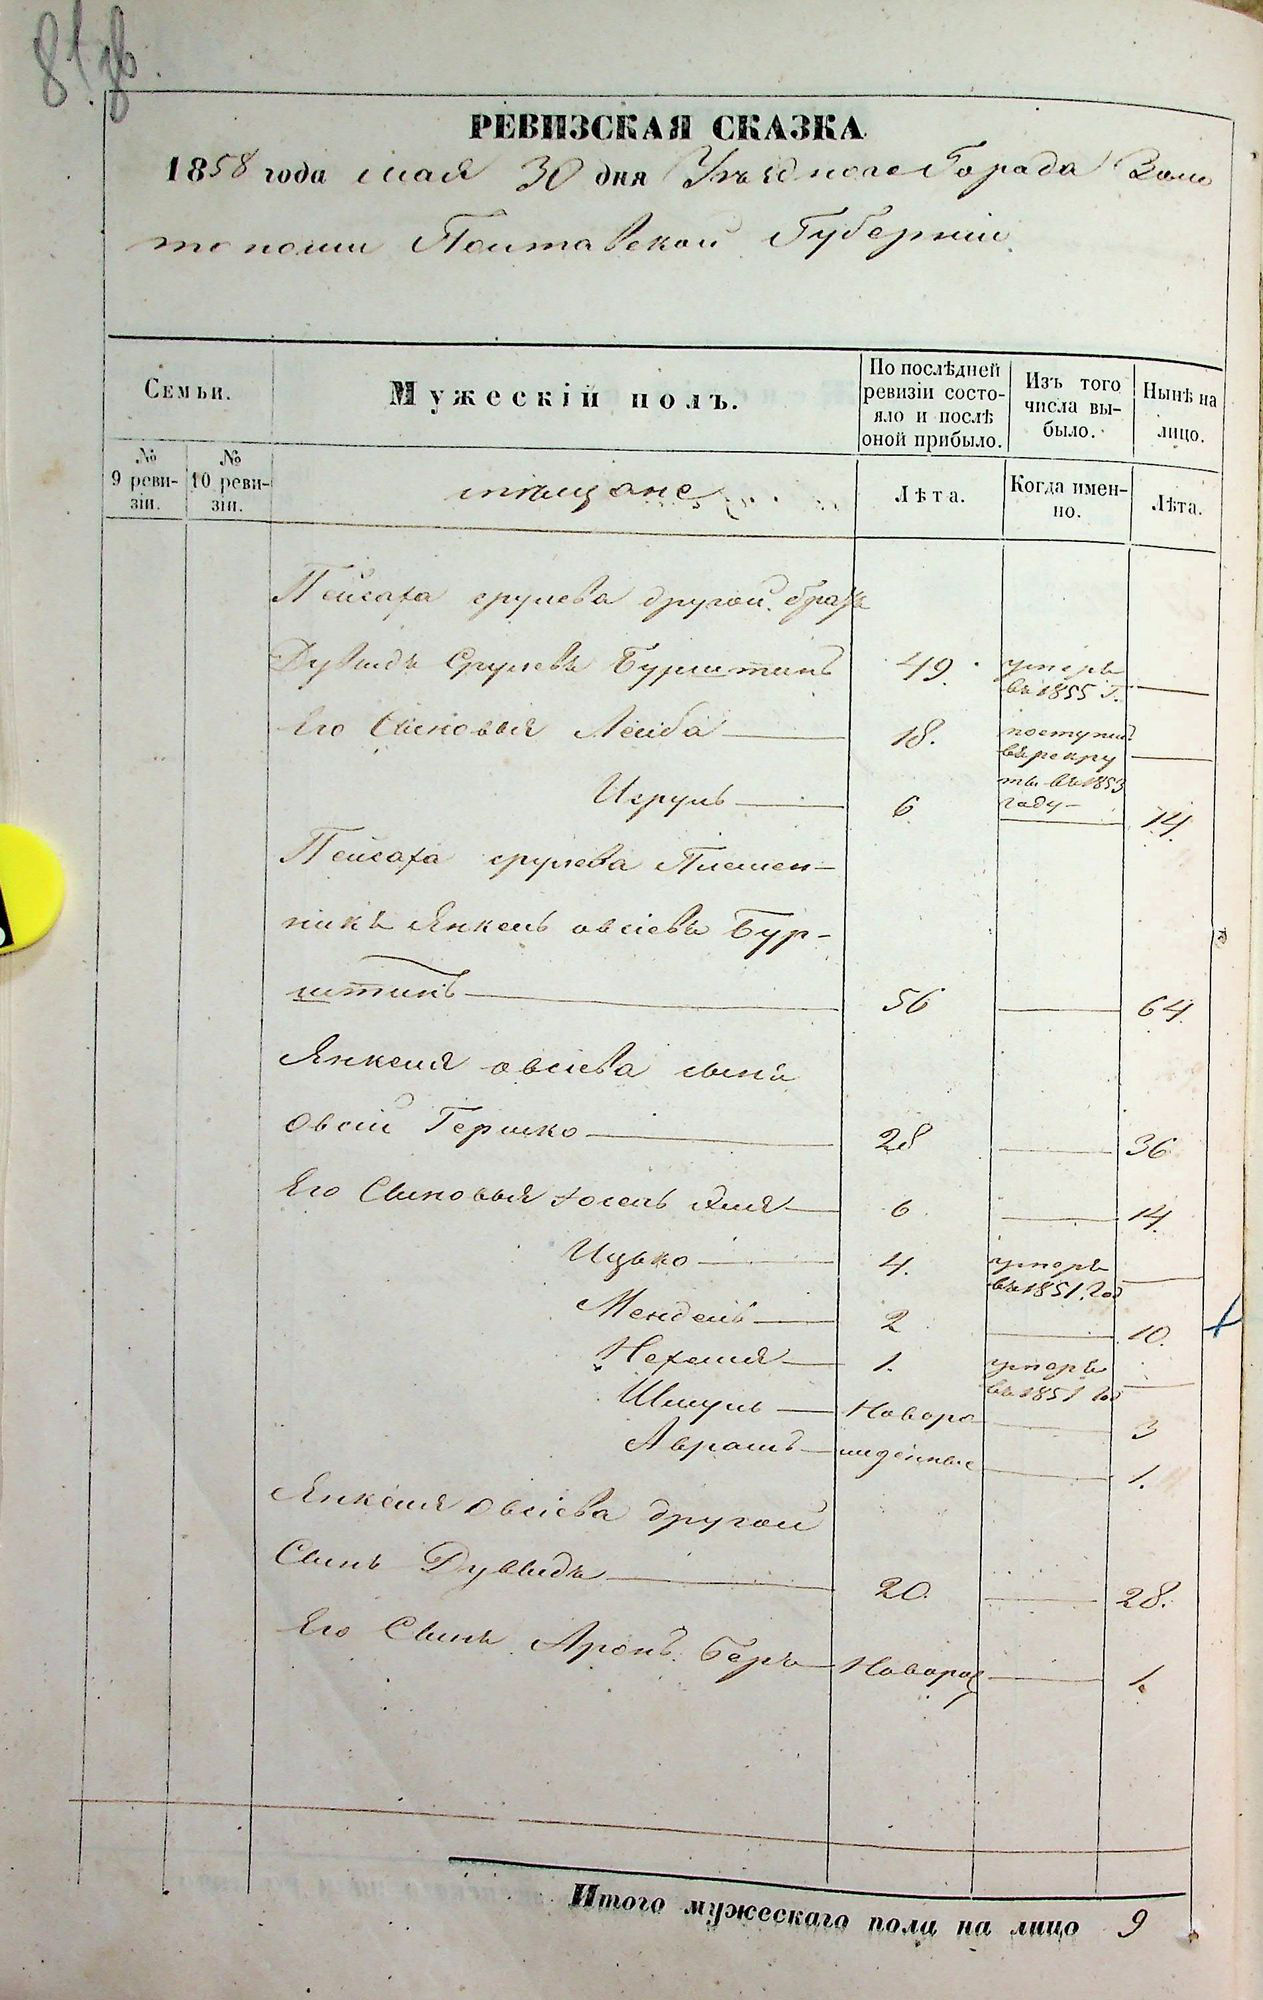 81 зв.
РЕВИЗСКАЯ СКАЗКА
1858 года мая 30 дня Уѣзднаго Города Золо
тоноши Полтавской Губерніи
Семьи.
Мужескій полъ.
По послѣдней ревизіи состо-
яло и послѣ оной прибыло.
Изъ того числа вы-
было.
Нынѣ на лицо.
№ 9 реви-
зіи.
№ 10 реви-
зіи.
мѣщане
Лѣта.
Когда имен-
но.
Лѣта.
Пейсаха срулева другой братъ
Дувидъ Срулевъ Бурштинъ 49. умеръ въ 1855 г.
Его Сыновья Лейба 18. поступил въ рекру
ты въ 1853 году
Исруль 6 14.
Пейсаха срулева Племен-
никъ Янкель овсіевъ Бур-
штинъ 56 64.
Янкеля овсіева сынъ
Овсій Гершко 28 36
Его Сыновья Іосель Эля 6 14.
Ицько 4. умеръ въ 1851. год
Мендель 2 10.
Нехемія 1. умеръ въ 1851 год
Шмуль Новоро 3
Аврамъ жденные 1.
Янкеля Овсіева другой
Сынъ Дувидъ 20. 28.
Его Сынъ Аронъ Беръ Новорож 1.
Итого мужескаго пола на лицо 9